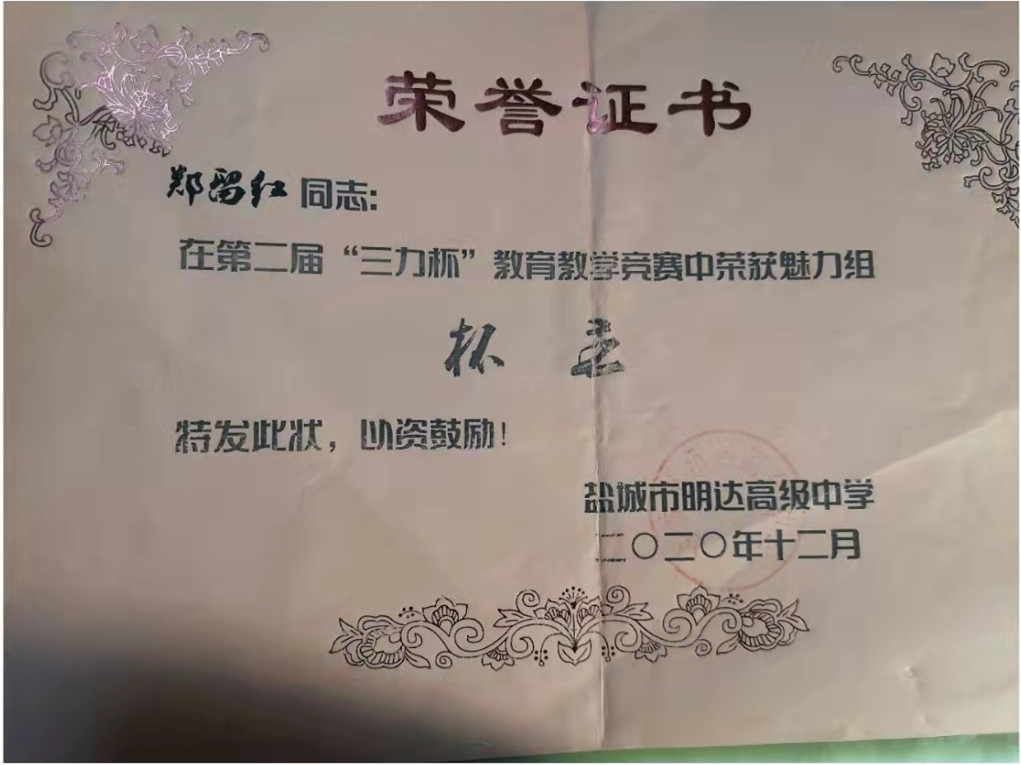 荣誉证书
郑留红 同志:
在第二届“三力杯”教育教学竞赛中荣获魅力组
杯
特发此状，以资鼓励!
盐城市明达高级中学
二〇二〇年十二月